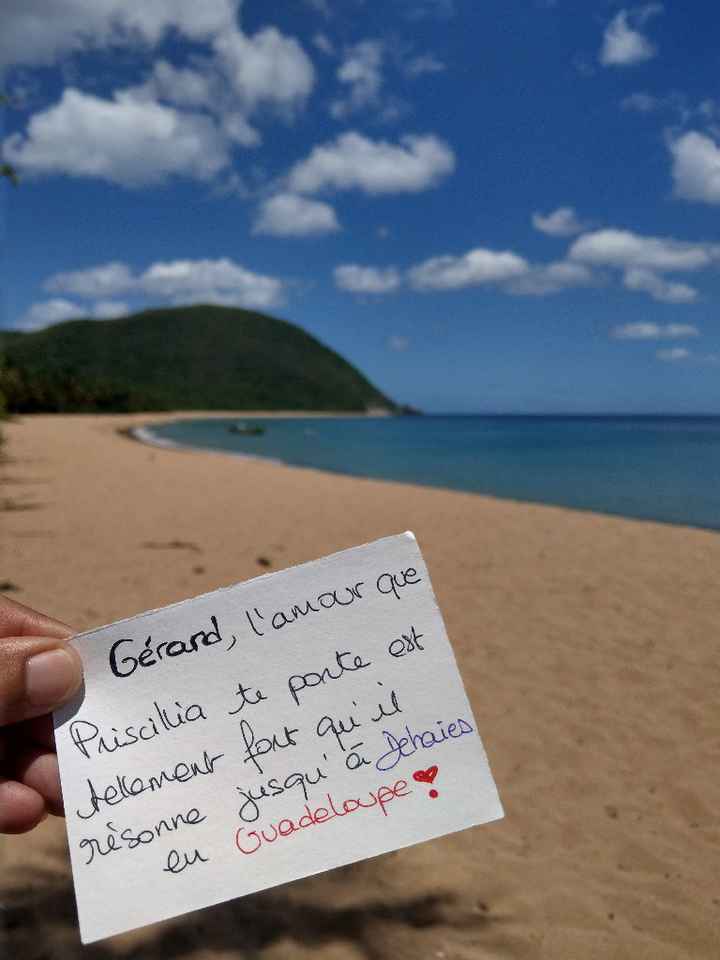 Gérard, l'amour que
Priscillia te porte est
tellement fort qu'il
résonne jusqu'à Dehaies
en Guadeloupe❣